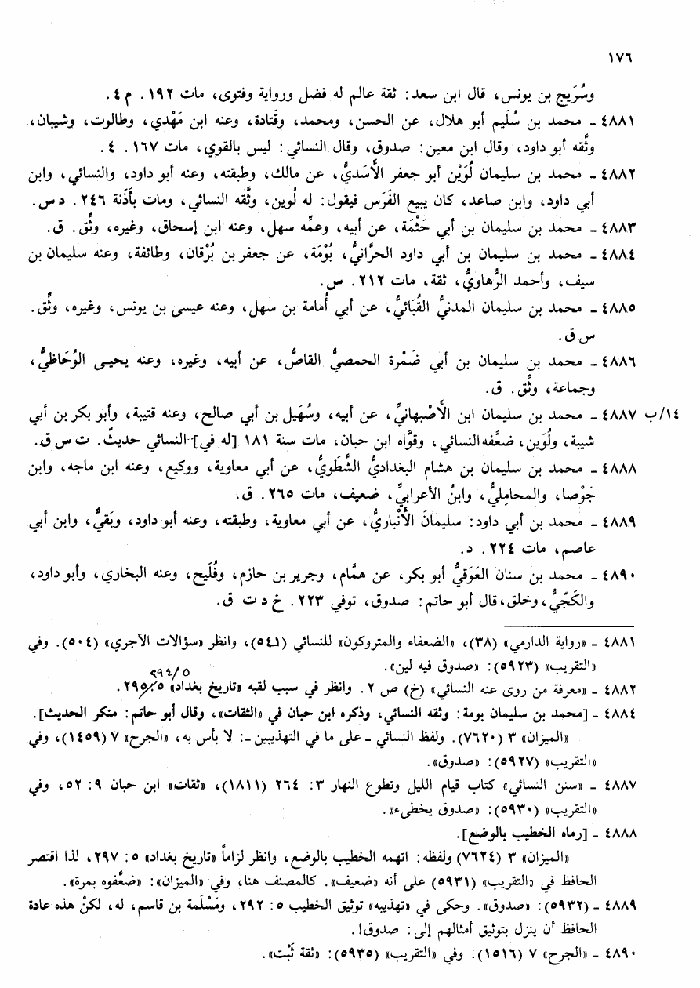 ١٧٦
وسُرَيج بن يونس، قال ابن سعد: ثقة عالم له فضل ورواية وفتوى، مات ١٩٢. م ٤.
٤٨٨١ - محمد بن سُلَيم أبو هلال، عن الحسن، ومحمد، وقَتادة، وعنه ابن مَهْدي، وطالوت، وشيبان،
وثَّقه أبو داود، وقال ابن معين: صدوق، وقال النسائي: ليس بالقوي، مات ١٦٧. ٤.
٤٨٨٢ - محمد بن سليمان لُوَيْن أبو جعفر الأَسَديُّ، عن مالك، وطبقته، وعنه أبو داود، والنسائي، وابن
أبي داود، وابن صاعد، كان يبيع الفَرَس فيقول: له لُوين، وثَّقه النسائي، ومات بأَذَنَة ٢٤٦. د س.
٤٨٨٣ - محمد بن سليمان بن أبي حَثْمَة، عن أبيه، وعمِّه سهل، وعنه ابن إسحاق، وغيره، وثِّق. ق.
٤٨٨٤ - محمد بن سليمان بن أبي داود الحرَّانيُّ، بُوْمَة، عن جعفر بن بُرْقان، وطائفة، وعنه سليمان بن
سيف، وأحمد الرُّهاويُّ، ثقة، مات ٢١٢. س.
٤٨٨٥ - محمد بن سليمان المدنيُّ القُبَائيُّ، عن أبي أُمامة بن سهل، وعنه عيسى بن يونس، وغيره، وثِّق.
س ق.
٤٨٨٦ - محمد بن سليمان بن أبي ضَمْرة الحمصيُّ القاصُّ، عن أبيه، وغيره، وعنه يحيى الوُحَاظيُّ،
وجماعة، وثِّق. ق.
١٤/ب ٤٨٨٧ - محمد بن سليمان ابن الأَصْبهانيِّ، عن أبيه، وسُهَيل بن أبي صالح، وعنه قتيبة، وأبو بكر بن أبي
شيبة، ولُوَين، ضعَّفه النسائي، وقوَّاه ابن حبان، مات سنة ١٨١ [له في] النسائي حديثٌ. ت س ق.
٤٨٨٨ - محمد بن سليمان بن هشام البغداديُّ الشَّطَويُّ، عن أبي معاوية، ووكيع، وعنه ابن ماجه، وابن
جَوْصا، والمحامليُّ، وابنُ الأعرابيِّ، ضعيف، مات ٢٦٥. ق.
٤٨٨٩ - محمد بن أبي داود: سليمانَ الأَنْباريُّ، عن أبي معاوية، وطبقته، وعنه أبو داود، وبَقيٌّ، وابن أبي
عاصم، مات ٢٢٤. د.
٤٨٩٠ - محمد بن سنان العَوَقيُّ أبو بكر، عن همَّام، وجرير بن حازم، وفُلَيح، وعنه البخاري، وأبو داود،
والكَجِّيُّ، وخلق، قال أبو حاتم: صدوق، توفي ٢٢٣. خ د ت ق.
٤٨٨١ - «رواية الدارمي» (٣٨)، «الضعفاء والمتروكون» للنسائي (٥٤١)، وانظر «سؤالات الآجري» (٥٠٤). وفي
«التقريب» (٥٩٢٣): «صدوق فيه لين».
٤٨٨٢ - «معرفة من روى عنه النسائي» (خ) ص ٢. وانظر في سبب لقبه «تاريخ بغداد» ٢٩٥/٥.
٤٨٨٤ - [محمد بن سليمان بومة: وثقه النسائي، وذكره ابن حبان في «الثقات»، وقال أبو حاتم: منكر الحديث].
«الميزان» ٣ (٧٦٢٠). ولفظ النسائي - على ما في التهذيبين -: لا بأس به، «الجرح» ٧ (١٤٥٩)، وفي
«التقريب» (٥٩٢٧): «صدوق».
٤٨٨٧ - «سنن النسائي» كتاب قيام الليل وتطوع النهار ٣: ٢٦٤ (١٨١١)، «ثقات» ابن حبان ٩: ٥٢، وفي
«التقريب» (٥٩٣٠): «صدوق يخطىء».
٤٨٨٨ - [رماه الخطيب بالوضع].
«الميزان» ٣ (٧٦٢٤) ولفظه: اتهمه الخطيب بالوضع، وانظر لزاماً «تاريخ بغداد» ٥: ٢٩٧، لذا اقتصر
الحافظ في «التقريب» (٥٩٣١) على أنه «ضعيف». كالمصنف هنا، وفي «الميزان»: «ضعَّفوه بمرة».
٤٨٨٩ - (٥٩٣٢): «صدوق». وحكى في «تهذيبه» توثيق الخطيب ٥: ٢٩٢، ومَسْلمة بن قاسم، له، لكنْ هذه عادة
الحافظ أن ينزل بتوثيق أمثالهم إلى: صدوق!.
٤٨٩٠ - «الجرح» ٧ (١٥١٦): وفي «التقريب» (٥٩٣٥): «ثقة ثَبْت».